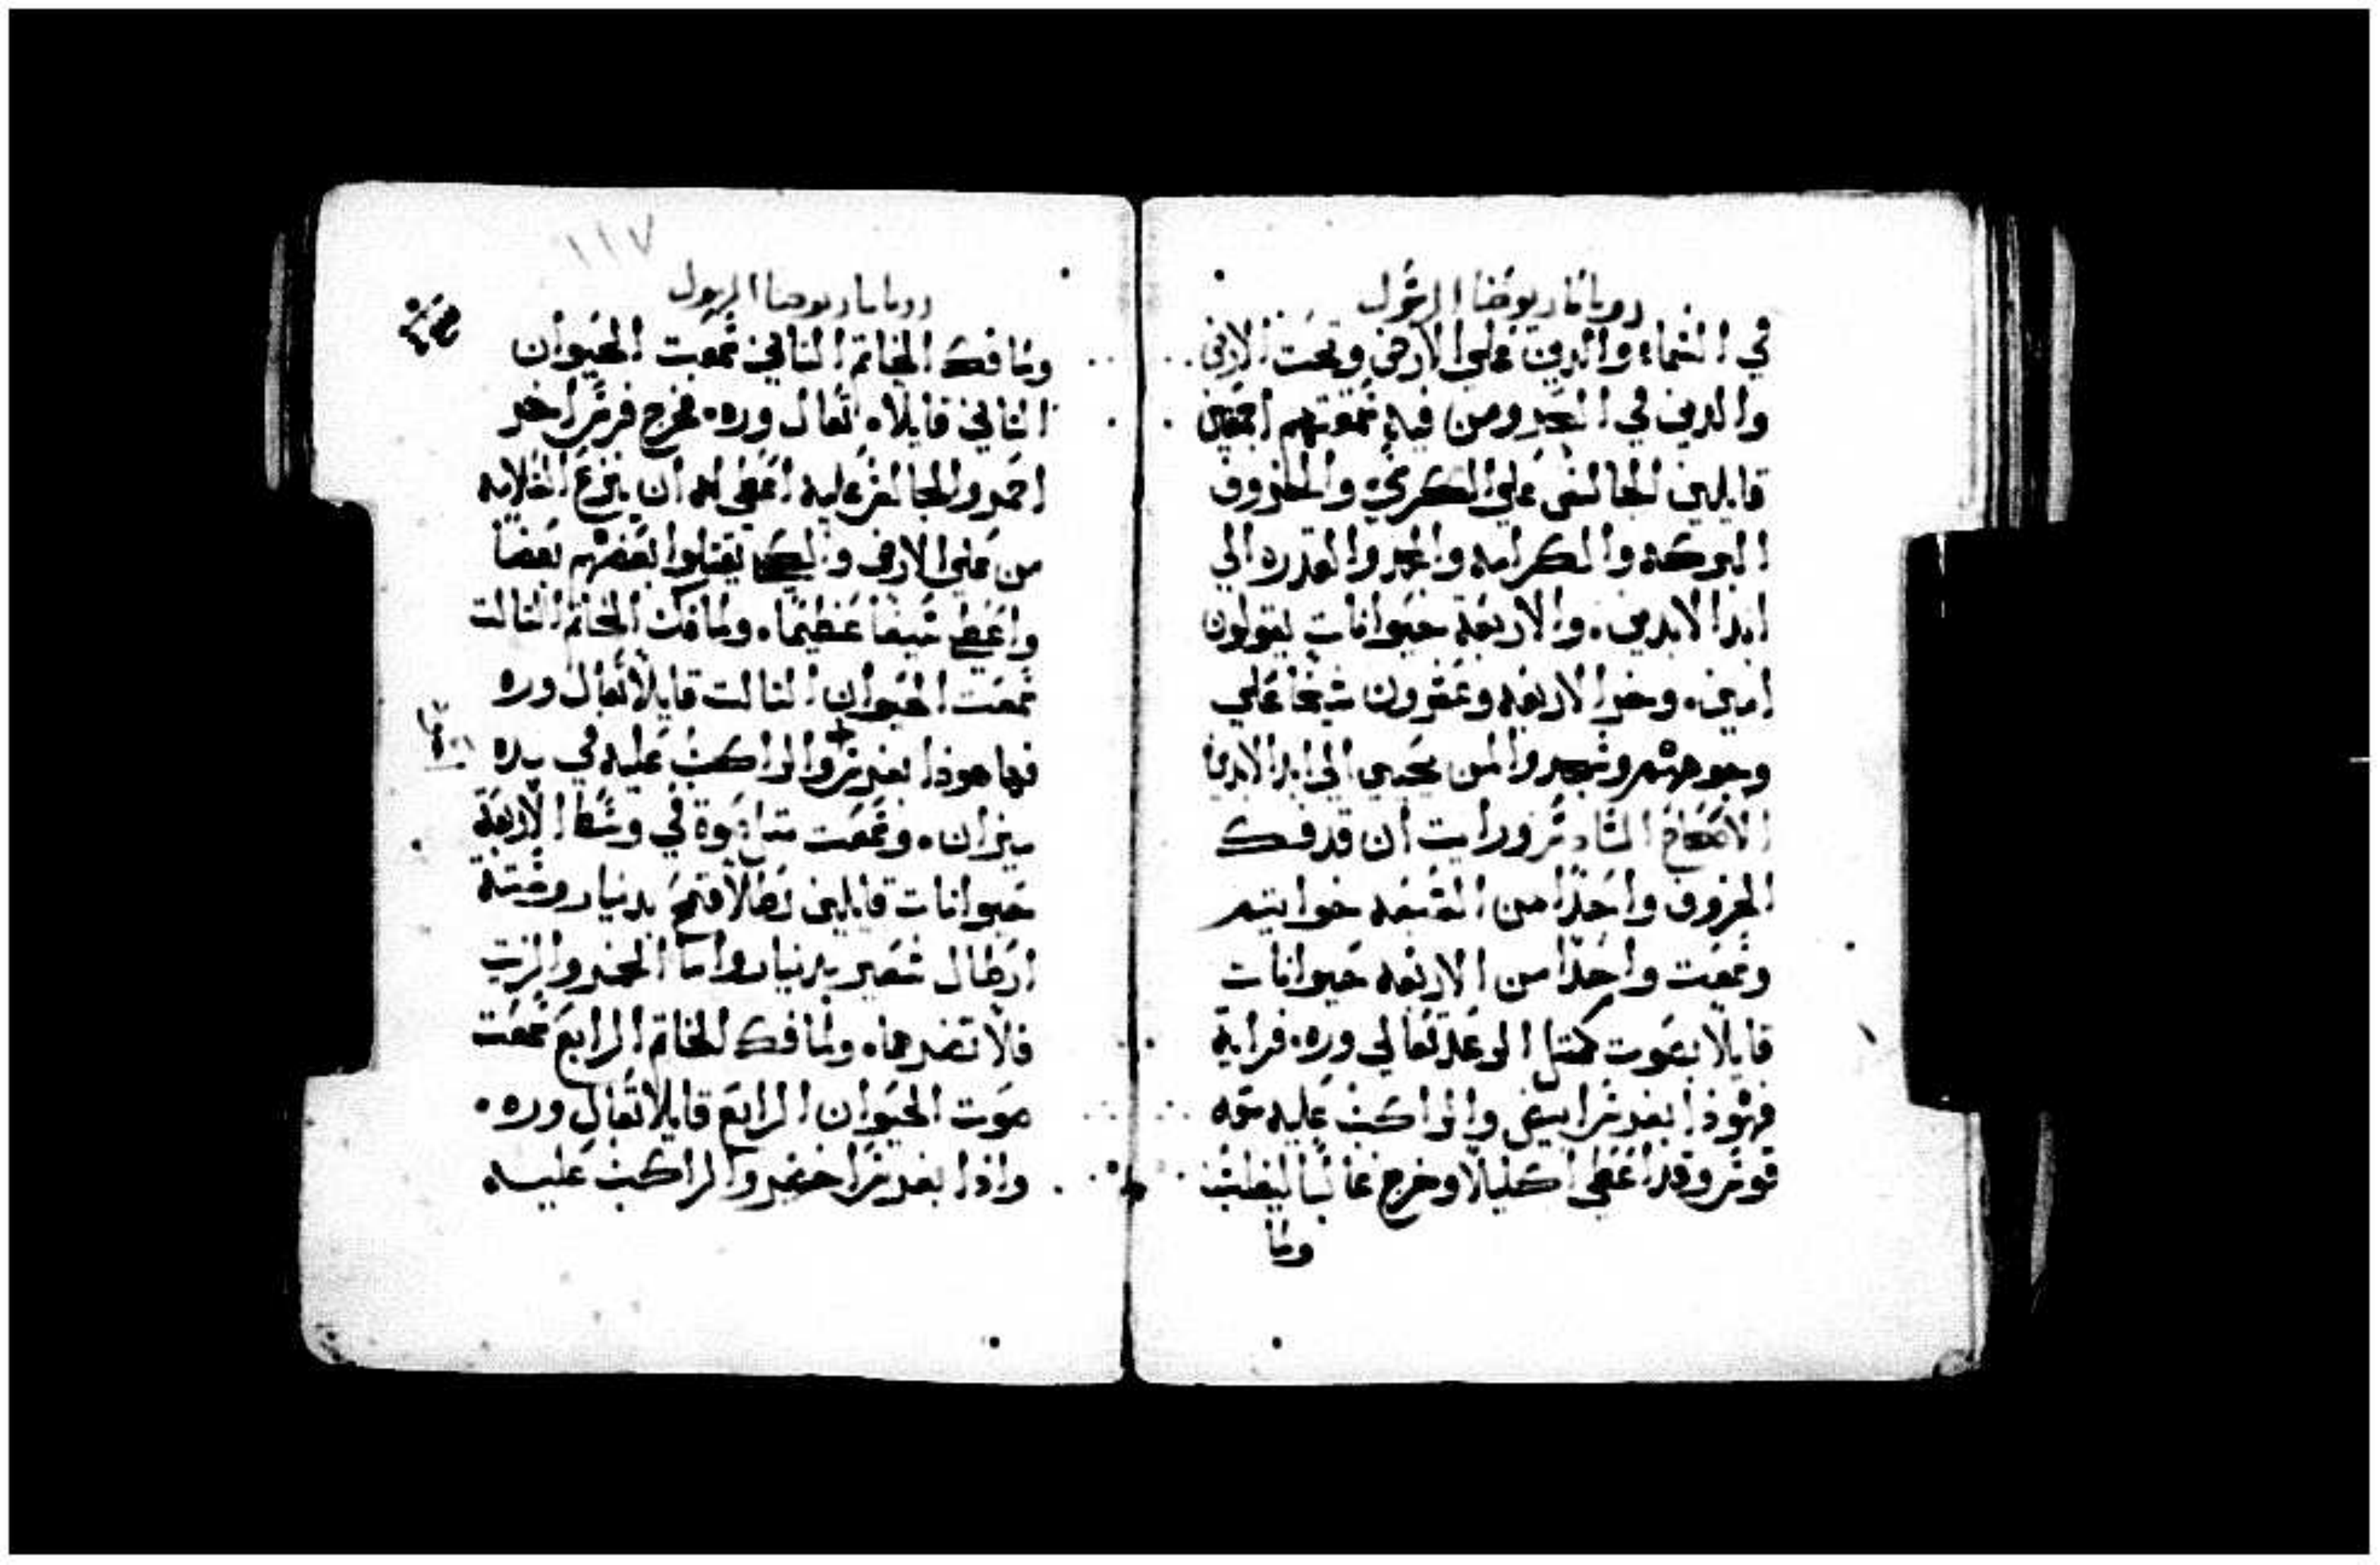 رويا مار يوحنا الرسول
في السماء والدين علي الارض وتحت الارض
والدين في البحر ومن فيه سمعتهم اجمعين
قايلين الجالس علي الكرسي والخروف
البركه والكرامه والمجد والقدره الي
ابد الابدين. والاربعة حيوانات يقولون
امين. وخر الاربعه وعشرون شيخا علي
وجوههم وسجدوا لمن يحيي الي ابد الابدين
الاصحاح السادس ورايت ان قد فك
الخروف واحدا من السبعه خواتيم
وسمعت واحدا من الاربعه حيوانات
قايلا بصوت كمتل الرعد تعالي وره. فرايت
فهوذا بفرس ابيض والراكب عليه معه
قوس وقد اعطي اكليلا وخرج غالبا ليغلب
ولما
١١٧
رويا مار يوحنا الرسول
ولما فك الخاتم التاني سمعت الحيوان
التاني قايلا. تعال وره. فخرج فرس اخر
احمر والجالس عليه اعطي له ان ينزع السلامه
من علي الارض ولكي يقتلوا بعضهم بعضا
واعطي سيفا عظيما. ولما فك الخاتم التالت
سمعت الحيوان التالت قايلا تعال وره
فها هوذا بفرس والراكب عليه في يده
ميزان. وسمعت متل صوة في وسط الاربعة
حيوانات قايلين رطلا قمح بدينار وستة
ارطال شعير بدينار واما الخمر والزيت
فلا تضرهما. ولما فك الخاتم الرابع سمعت
صوت الحيوان الرابع قايلا تعال وره.
واذا بفرس اخضر والراكب عليه